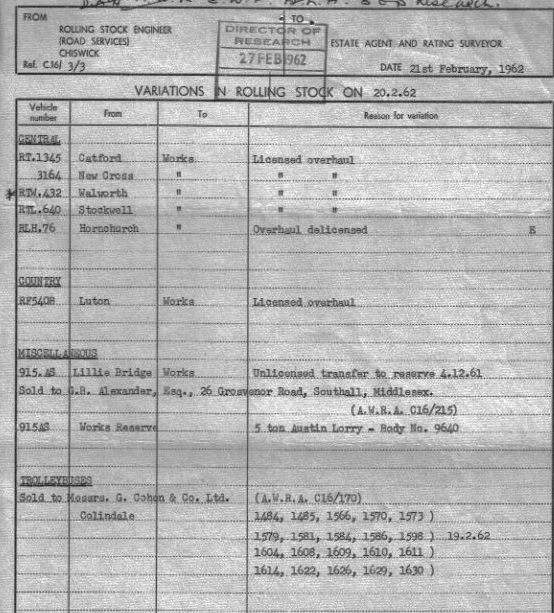 Research.
FROM
TO
ROLLING STOCK ENGINEER
(ROAD SERVICES)
CHISWICK
Ref. C16/ 3/3
DIRECTOR OF
RESEARCH
27 FEB 1962
ESTATE AGENT AND RATING SURVEYOR
DATE 21st February, 1962
VARIATIONS IN ROLLING STOCK ON 20.2.62
Vehicle number From To Reason for variation
CENTRAL
RT.1345 Catford Works Licensed overhaul
3164 New Cross " " "
* RTW.432 Walworth " " "
RTL.640 Stockwell " " "
RLH.76 Hornchurch " Overhaul delicensed E
COUNTRY
RF540B Luton Works Licensed overhaul
MISCELLANEOUS
915.AS Lillie Bridge Works Unlicensed transfer to reserve 4.12.61
Sold to G.R. Alexander, Esq., 26 Grosvenor Road, Southall, Middlesex.
(A.W.R.A. C16/215)
915AS Works Reserve 5 ton Austin Lorry - Body No. 9640
TROLLEYBUSES
Sold to Messrs. G. Cohen & Co. Ltd. (A.W.R.A. C16/170)
Colindale 1484, 1485, 1566, 1570, 1573 )
1579, 1581, 1584, 1586, 1598 ) 19.2.62
1604, 1608, 1609, 1610, 1611 )
1614, 1622, 1626, 1629, 1630 )